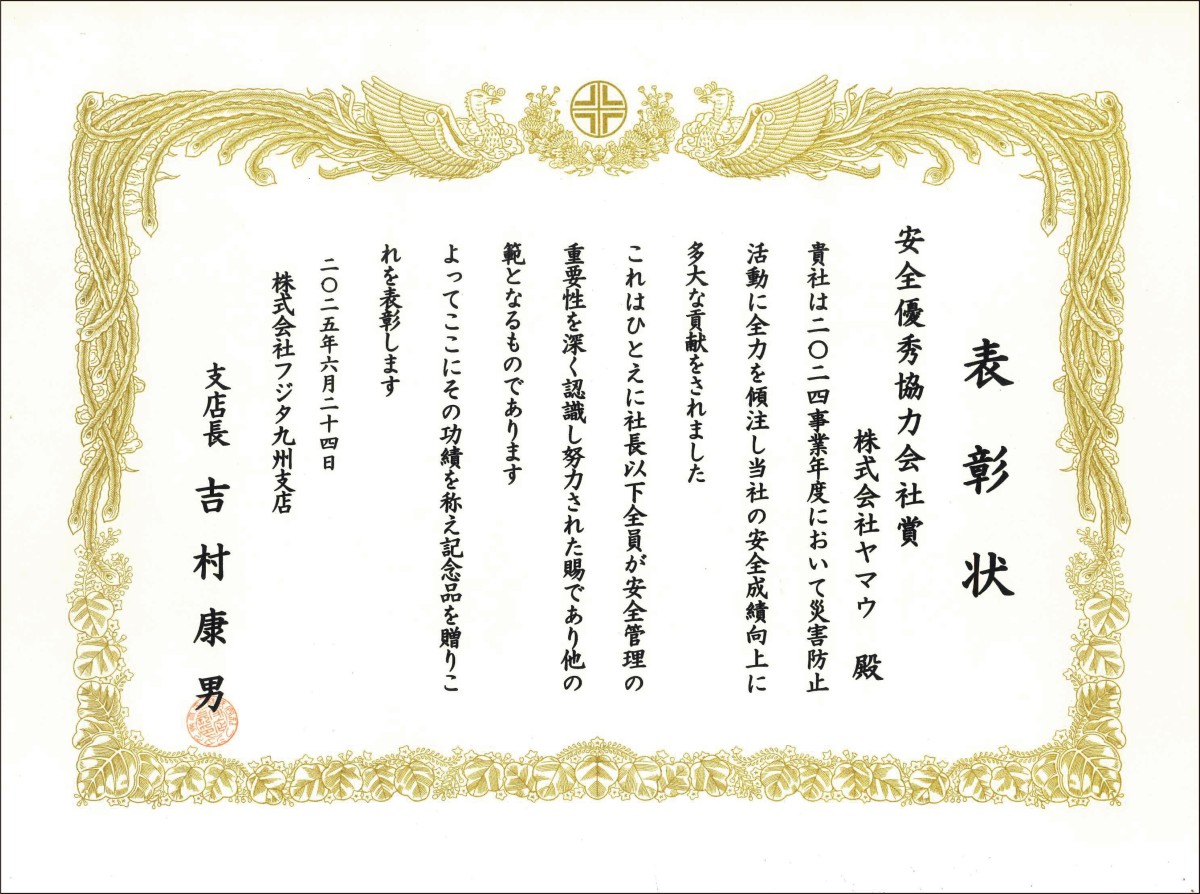 表彰状
安全優秀協力会社賞
株式会社ヤマウ 殿
貴社は二〇二四事業年度において災害防止
活動に全力を傾注し当社の安全成績向上に
多大な貢献をされました
これはひとえに社長以下全員が安全管理の
重要性を深く認識し努力された賜であり他の
範となるものであります
よってここにその功績を称え記念品を贈りこ
れを表彰します
二〇二五年六月二十四日
株式会社フジタ九州支店
支店長 吉村康男